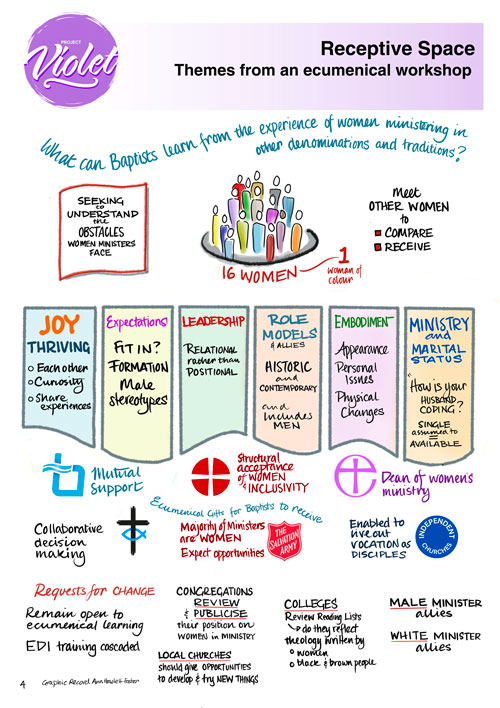 PROJECT
Violet
Receptive Space
Themes from an ecumenical workshop
What can Baptists learn from the experience of women ministering in
other denominations and traditions?
SEEKING
to
UNDERSTAND
the
OBSTACLES
WOMEN MINISTERS
FACE
16 WOMEN
1
woman of
colour
Meet
OTHER WOMEN
to
COMPARE
RECEIVE
JOY
THRIVING
Each other
Curiosity
Share
experiences
Expectations
FIT IN?
FORMATION
Male
stereotypes
LEADERSHIP
RELATIONAL
rather than
POSITIONAL
ROLE
MODELS
& ALLIES
HISTORIC
and
CONTEMPORARY
and
includes
MEN
EMBODIMENT
Appearance
Personal
Issues
Physical
Changes
MINISTRY
and
MARITAL
STATUS
"How is your
HUSBAND
COPING?
SINGLE
assumed to
=
AVAILABLE
Mutual
Support
Structural
acceptance
of WOMEN
& INCLUSIVITY
Dean of women's
ministry
Ecumenical Gifts for Baptists to receive
Collaborative
decision
making
Majority of Ministers
are WOMEN
Expect opportunities
THE
SALVATION
ARMY
Enabled to
live out
VOCATION as
DISCIPLES
INDEPENDENT
CHURCHES
Requests for CHANGE
Remain open to
ecumenical learning
EDI training cascaded
CONGREGATIONS
REVIEW
& PUBLICISE
their position on
WOMEN IN MINISTRY
LOCAL CHURCHES
should give OPPORTUNITIES
to develop & try NEW THINGS
COLLEGES
Review Reading Lists
do they reflect
theology written by
women
black & brown people
MALE MINISTER
allies
WHITE MINISTER
allies
4
Graphic Record Ann